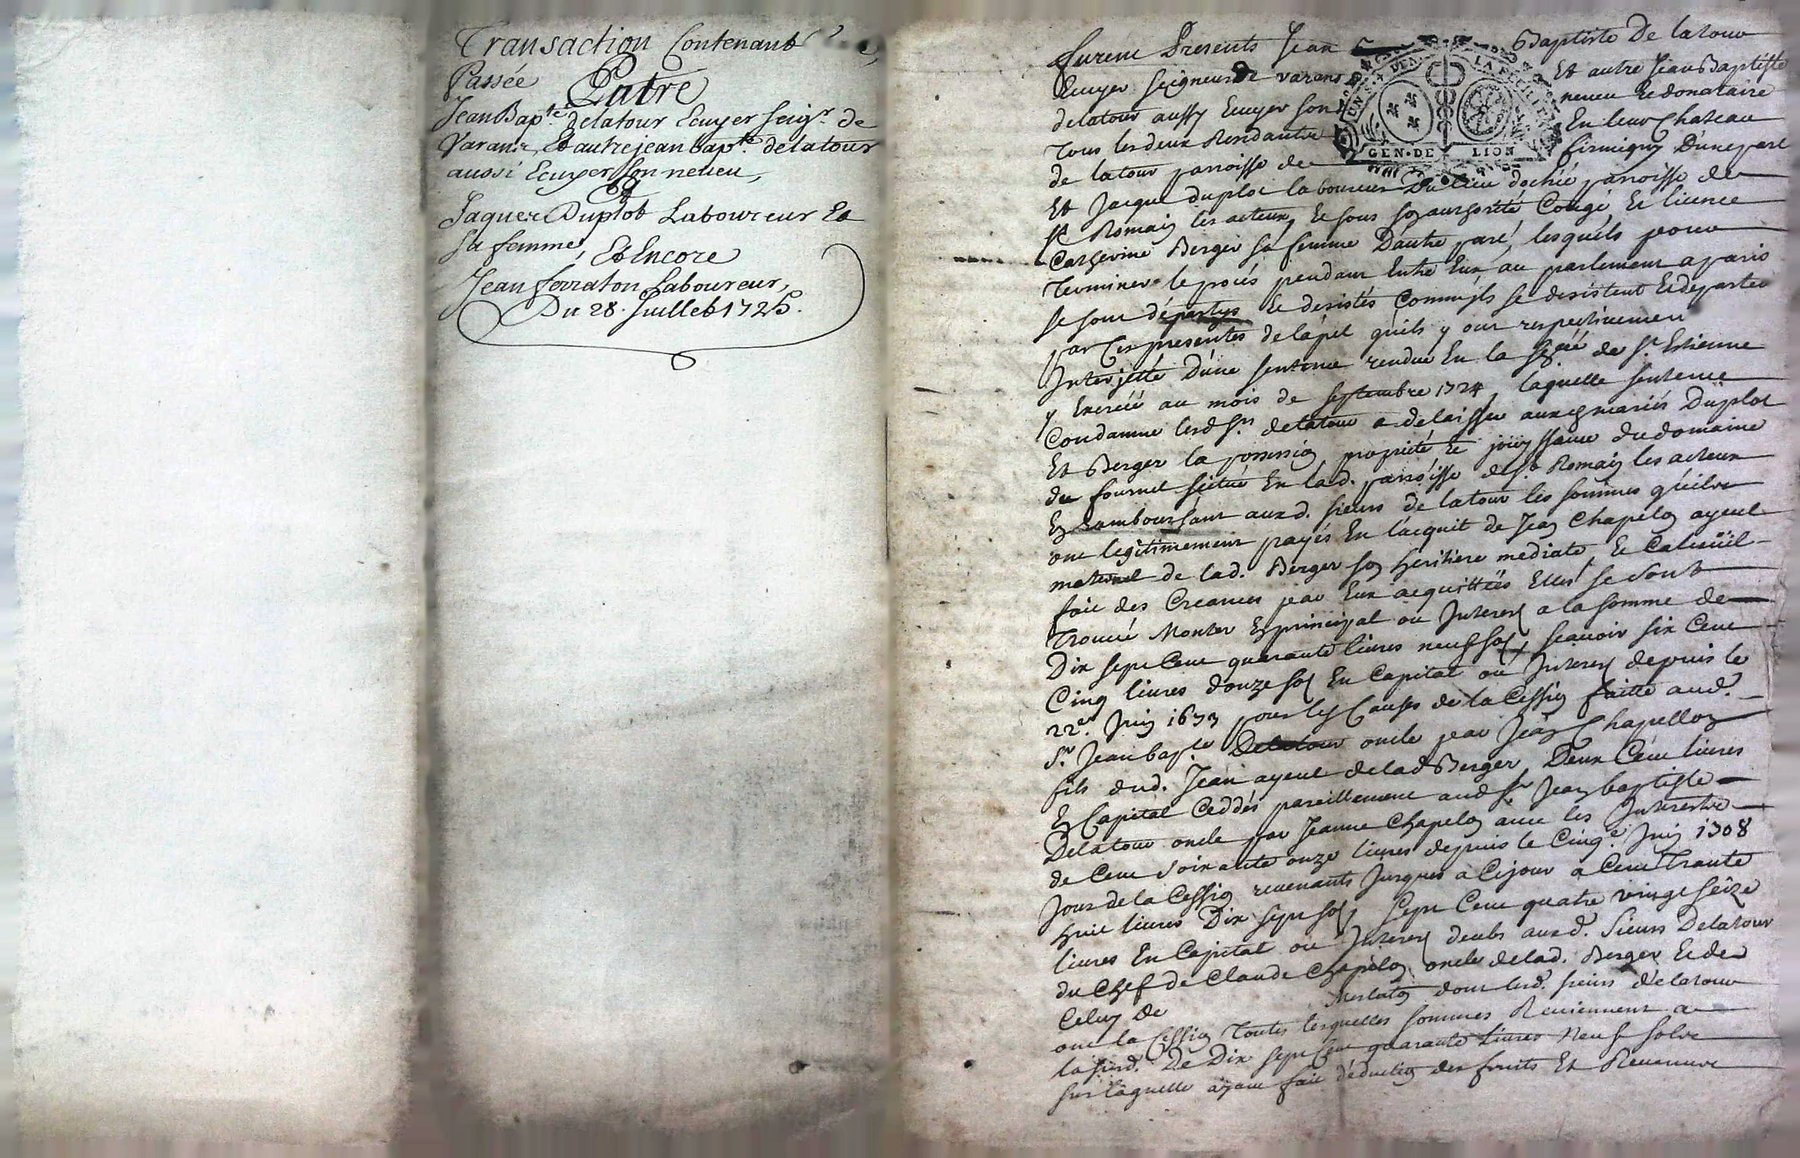 Transaction Contenant
Passée
Entre
Jean Bapte delatour Ecuyer seigr. de
Varans, Et autre jean bapte delatour
aussi Ecuyer son neveu,
Et
Jaques Duplot Laboureur Et
sa femme, Et Encore
Jean forraton Laboureur,
Du 28. Juillet 1725.
furent Presents Jean Baptiste De latour
Ecuyer seigneur de varans Et autre Jean Baptiste
delatour aussy Ecuyer son neveu Et donataire
Tous les deux Residants En leur Chateau
de latour parroisse de firmigny D'une part
GEN·DE LION
Et Jacque duplot laboureur Du lieu dochié parroisse de
st Romain les atteux, Et sous son authorité Congé, Et licence
Catherine Berger sa femme D'autre part, lesquels pour
Terminer le procés pendant Entre Eux, au parlement a paris
se sont départys Et desistés Comm'ils se desistent Et departent
par Ces presentes de l'apel qu'ils y ont respectivement
Interjetté D'une sentence rendue En la de St Estienne
y Exercée au mois de septembre 1724, laquelle sentence
Condamne lesd. srs. delatour a delaisser aux mariés Duplot
Et Berger la possession propriété Et jouissance du domaine
du fournel scitué En lad. parroisse de st Romain les atteux
En Ramboursant auxd. sieurs de latour les sommes qu'ils
ont legitimement payés En l'acquit de Jean Chapelon ayeul
maternel de lad. Berger son heritiere mediate, Et
fait des Creances par Eux acquittées Elles se sont
Trouvé Monter En principal ou Interest a la somme de
Dix sept Cent quarante livres neuf sols, scavoir six Cent
Cinq livres douze sols En Capital ou Interest depuis le
22e. Juin 1673 pour les Causes de la Cession faitte aud.
Sr. Jean bapte Delatour oncle par Jean Chapellon
fils dud. Jean ayeul de lad Berger, Deux Cent livres
En Capital Ceddés pareillement aud Sr Jean baptiste
Delatour oncle par Jeanne Chapelon avec les Interests
de Cent soixante onze livres depuis le Cinqe Juin 1708
Jour de la Cession revenants Jusques a Ce jour a Cent Trante
huit livres Dix sept sols, sept Cent quatre vingt seize
livres En Capital ou Interest deubs auxd. sieurs Delatour
du Chef de Claude Chapelon oncle de lad. Berger Et de
Celuy de dont lesd. sieurs delatour
ont la Cession Toutes lesquelles sommes Reviennent a
la susd. De Dix sept Cent quarante Livres Neuf sols
sur laquelle ayant fait déduction des fruits Et Revenus